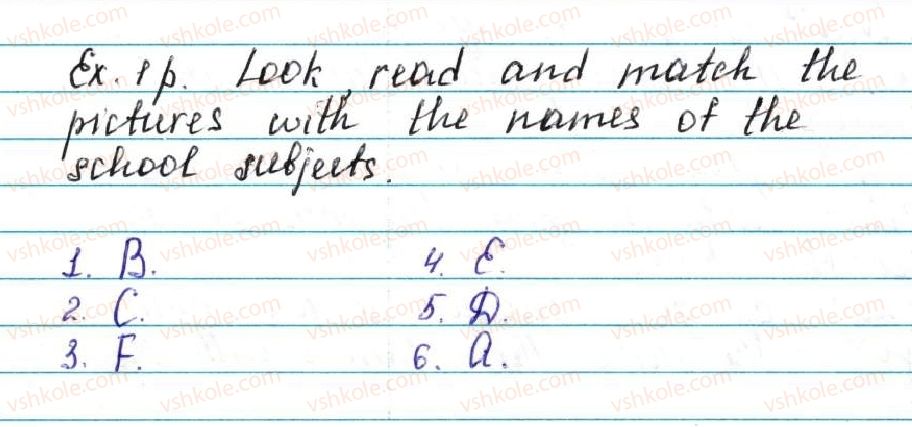 Ex. 1 p. Look, read and match the
pictures with the names of the
school subjects.
1. B. 4. E.
2. C. 5. D.
3. F. 6. A.
vshkole.com